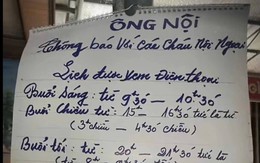 ÔNG NỘI
Thông báo Với Các Cháu Nội Ngoại
Lịch được xem Điện thoại
Buổi Sáng: từ 9h30 – 10h30
Buổi Chiều: từ 15 – 16h30 tức là từ
(3h chiều – 4h30 chiều)
Buổi tối: từ: 20h – 21h30 tức là